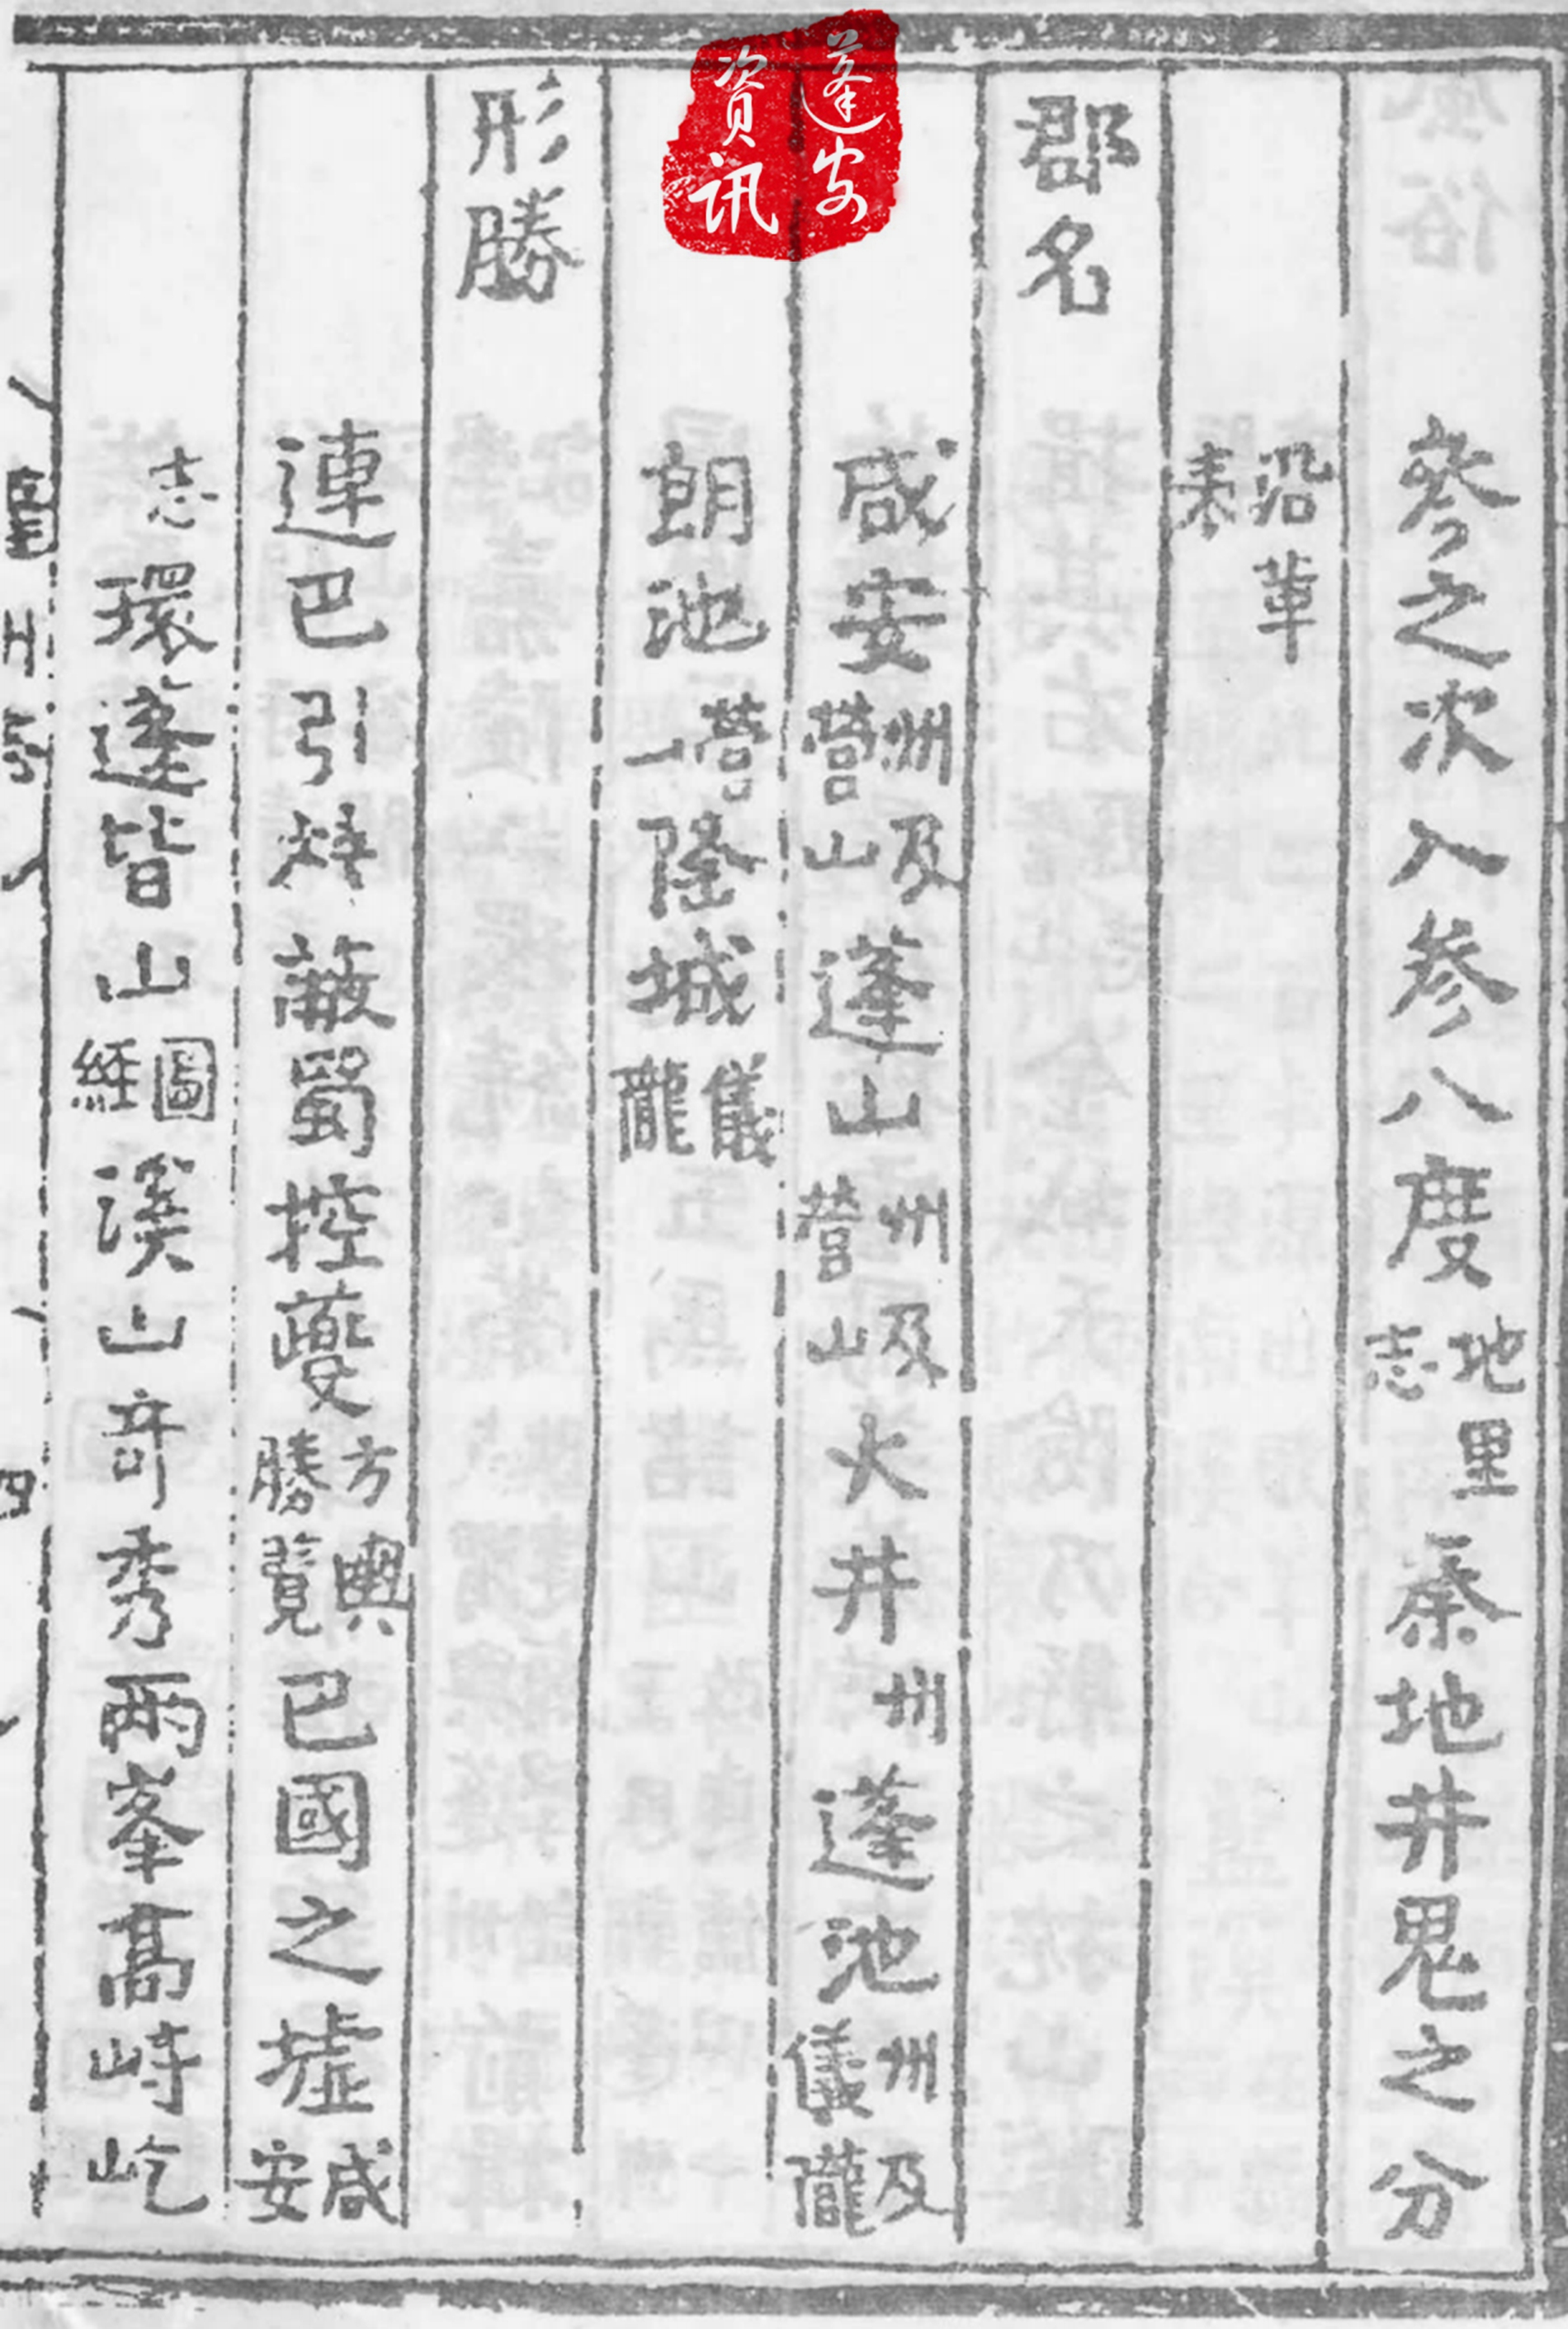 參之次入參八度地里志秦地井鬼之分
沿革表
郡名
咸安州及營山蓬山州及營山火井州蓬池州及儀隴
朗池營一隆城儀隴
形勝
連巴引蔽蜀控夔方輿勝覽巴國之墟咸安
志環蓬皆山圖經溪山竒秀兩峯髙峙屹
蓬安
資訊